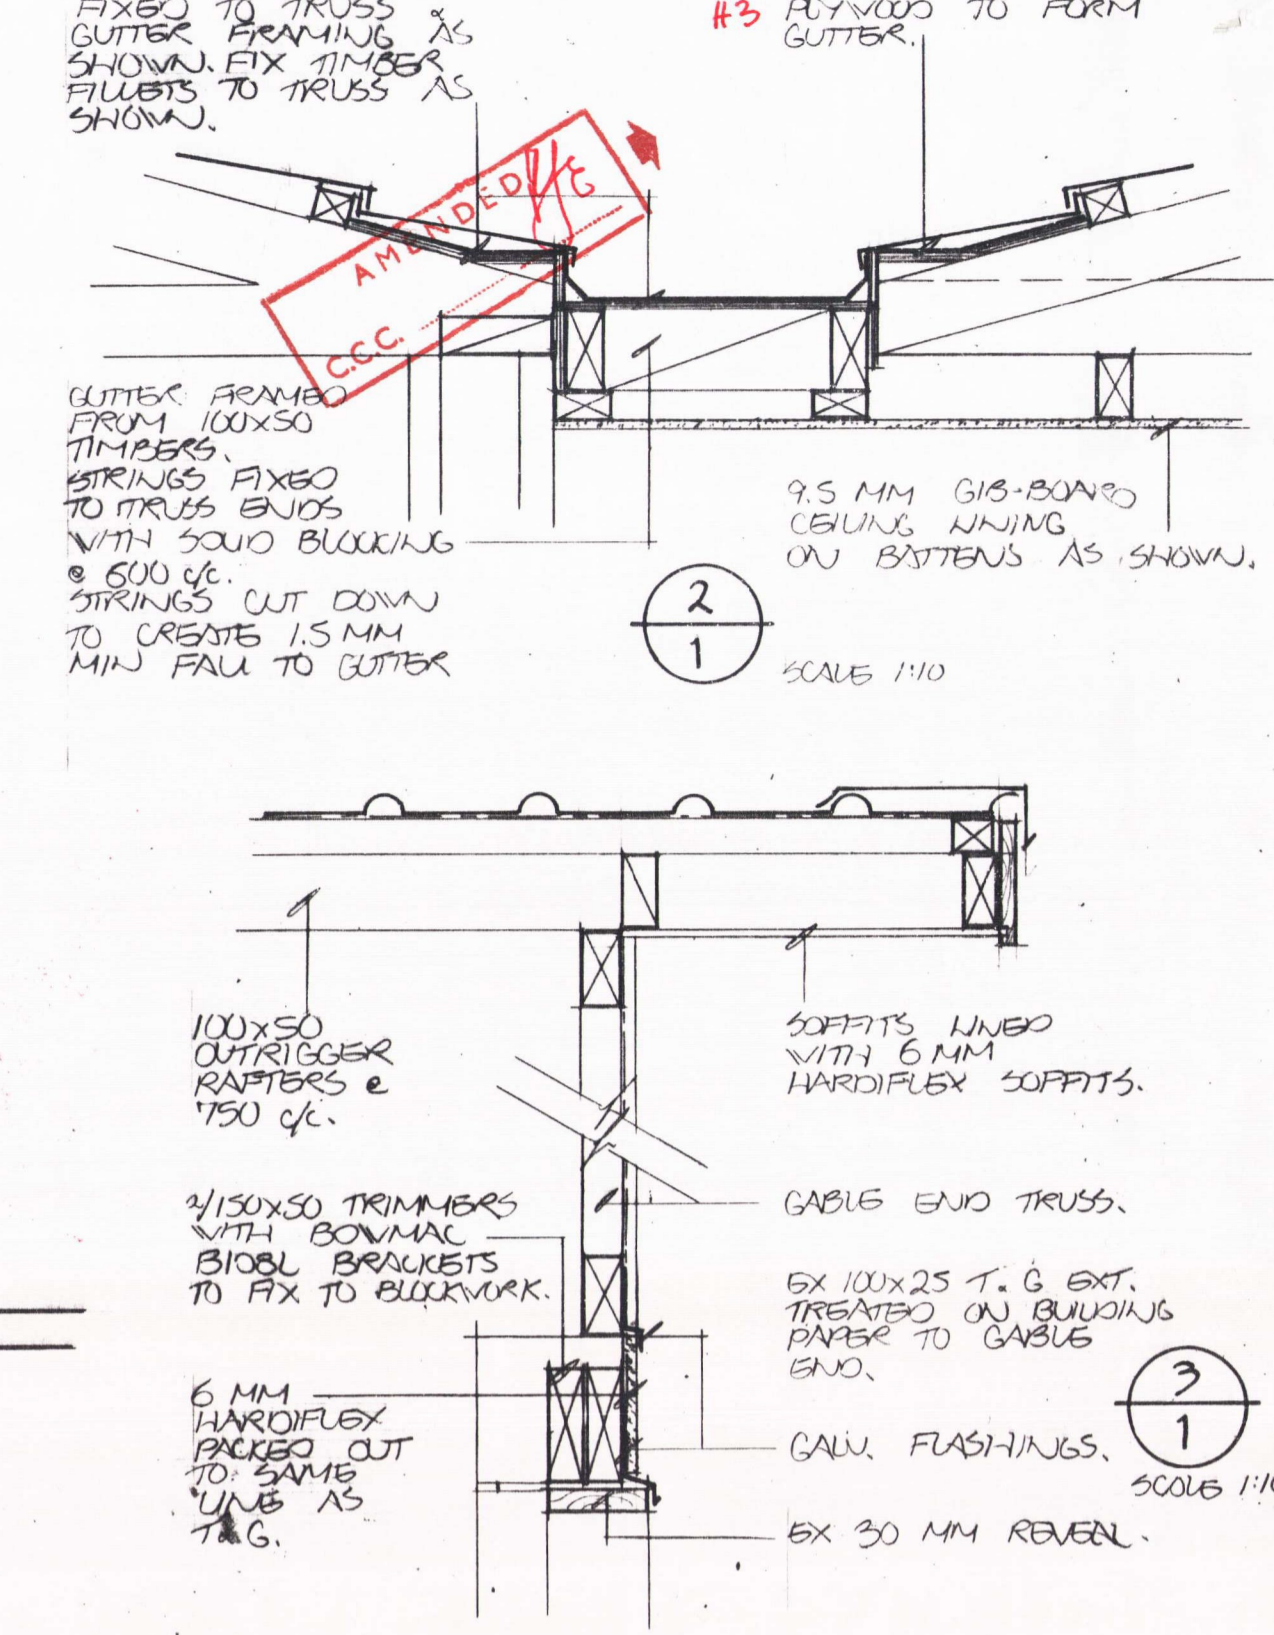 FIXED TO TRUSS &
GUTTER FRAMING AS
SHOWN. FIX TIMBER
FILLETS TO TRUSS AS
SHOWN.
H3 PLYWOOD TO FORM
GUTTER.
AMENDED
C.C.C.
GUTTER FRAMED
FROM 100x50
TIMBERS.
STRINGS FIXED
TO TRUSS ENDS
WITH SOLID BLOCKING
@ 600 c/c.
STRINGS CUT DOWN
TO CREATE 1.5 MM
MIN FALL TO GUTTER
9.5 MM GIB-BOARD
CEILING LINING
ON BATTENS AS SHOWN.
2
1
SCALE 1:10
100x50
OUTRIGGER
RAFTERS @
750 c/c.
SOFFITS LINED
WITH 6 MM
HARDIFLEX SOFFITS.
2/150x50 TRIMMERS
WITH BOWMAC
B108L BRACKETS
TO FIX TO BLOCKWORK.
GABLE END TRUSS.
EX 100x25 T. G EXT.
TREATED ON BUILDING
PAPER TO GABLE
END.
6 MM
HARDIFLEX
PACKED OUT
TO SAME
LINE AS
T&G.
GALV. FLASHINGS.
3
1
SCALE 1:10
EX 30 MM REVEAL.